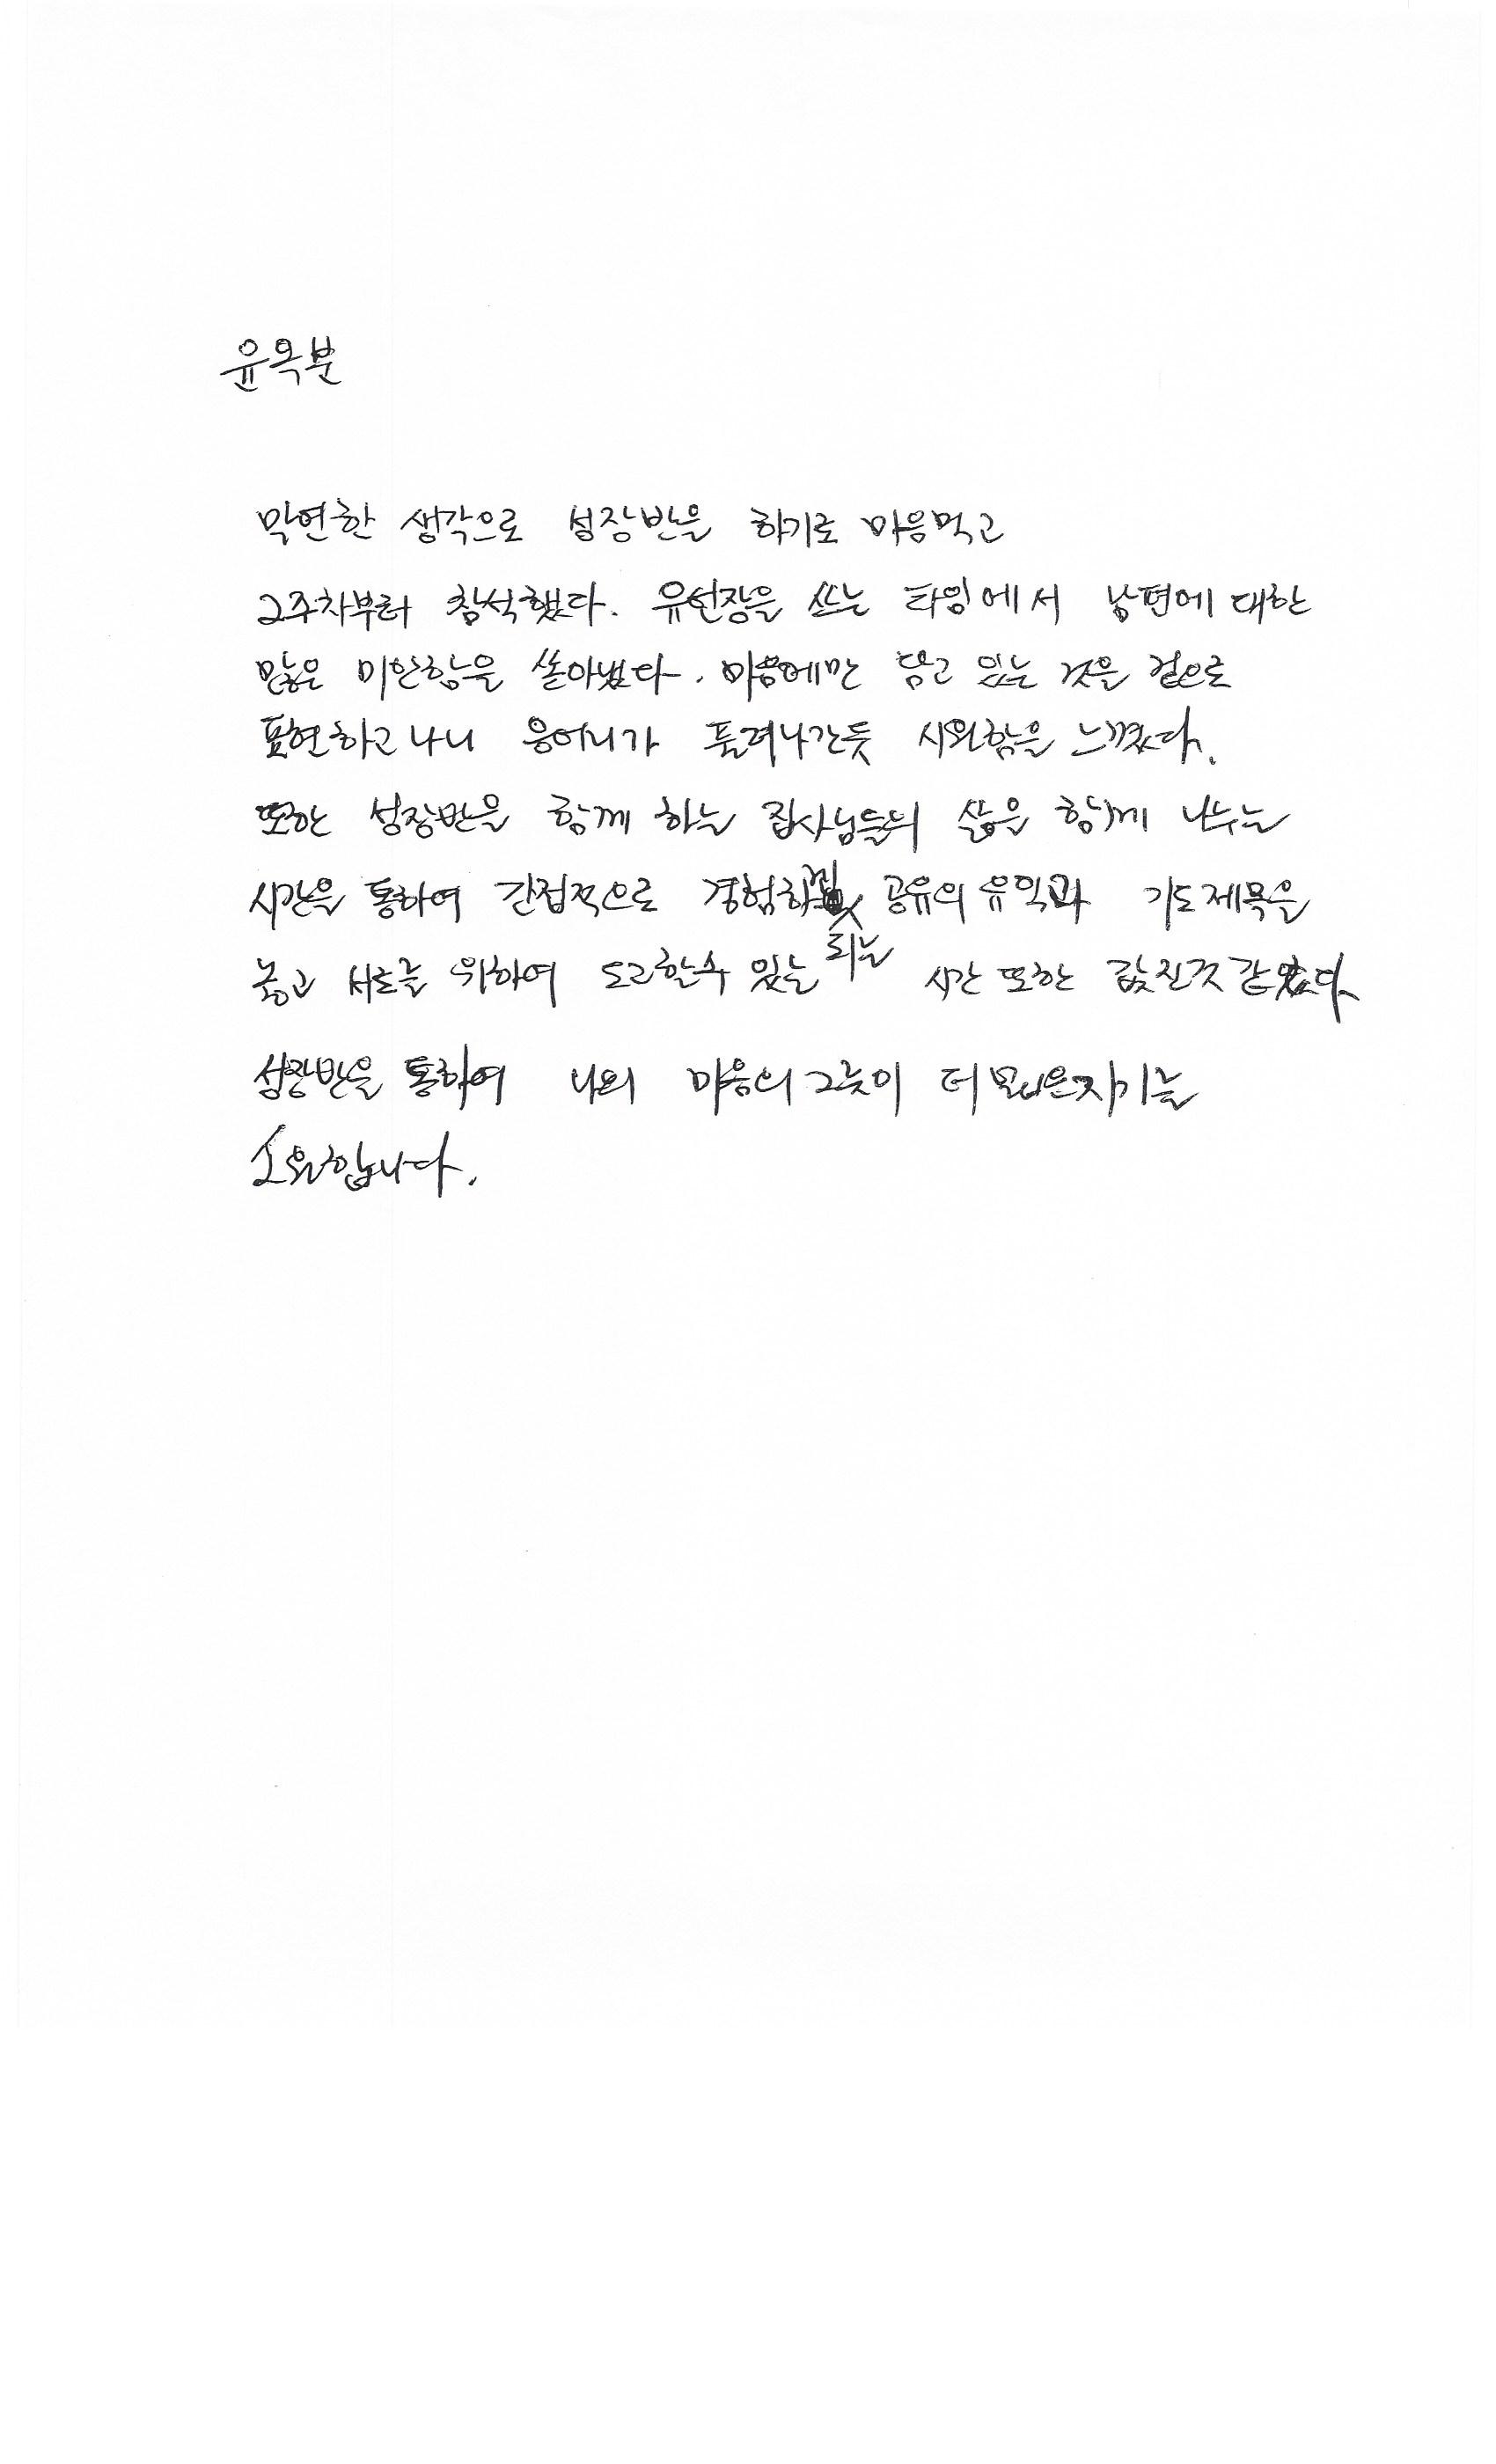 윤옥분
막연한 생각으로 성장반을 하기로 마음먹고
2주차부터 참석했다. 유언장을 쓰는 타임에서 남편에 대한
많은 미안함을 쏟아냈다. 마음에만 담고 있는 것을 겉으로
표현하고나니 응어리가 풀려나간듯 시원함을 느꼈다.
또한 성장반을 함께 하는 집사님들의 삶을 함께 나누는
시간을 통하여 간접적으로 경험하 공유의 유익과 기도제목을
놓고 서로를 위하여 도고할수 있는 되는 시간 또한 값진것 같았다
성장반을 통하여 나의 마음의 그릇이 더
소원합니다.